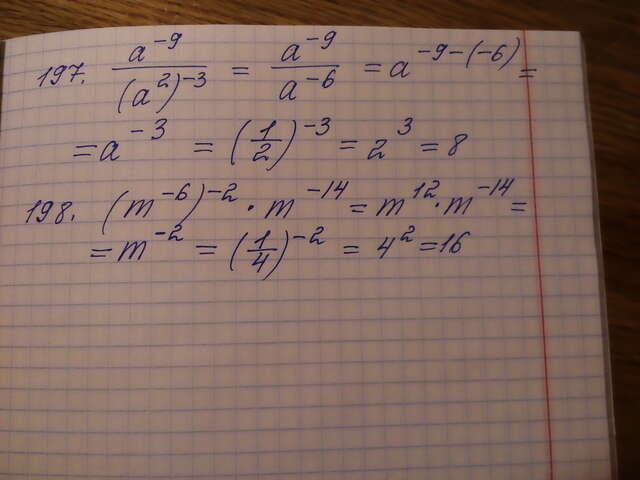 197. a⁻⁹/(a²)⁻³ = a⁻⁹/a⁻⁶ = a⁻⁹⁻⁽⁻⁶⁾ =
= a⁻³ = (1/2)⁻³ = 2³ = 8
198. (m⁻⁶)⁻² · m⁻¹⁴ = m¹² · m⁻¹⁴ =
= m⁻² = (1/4)⁻² = 4² = 16